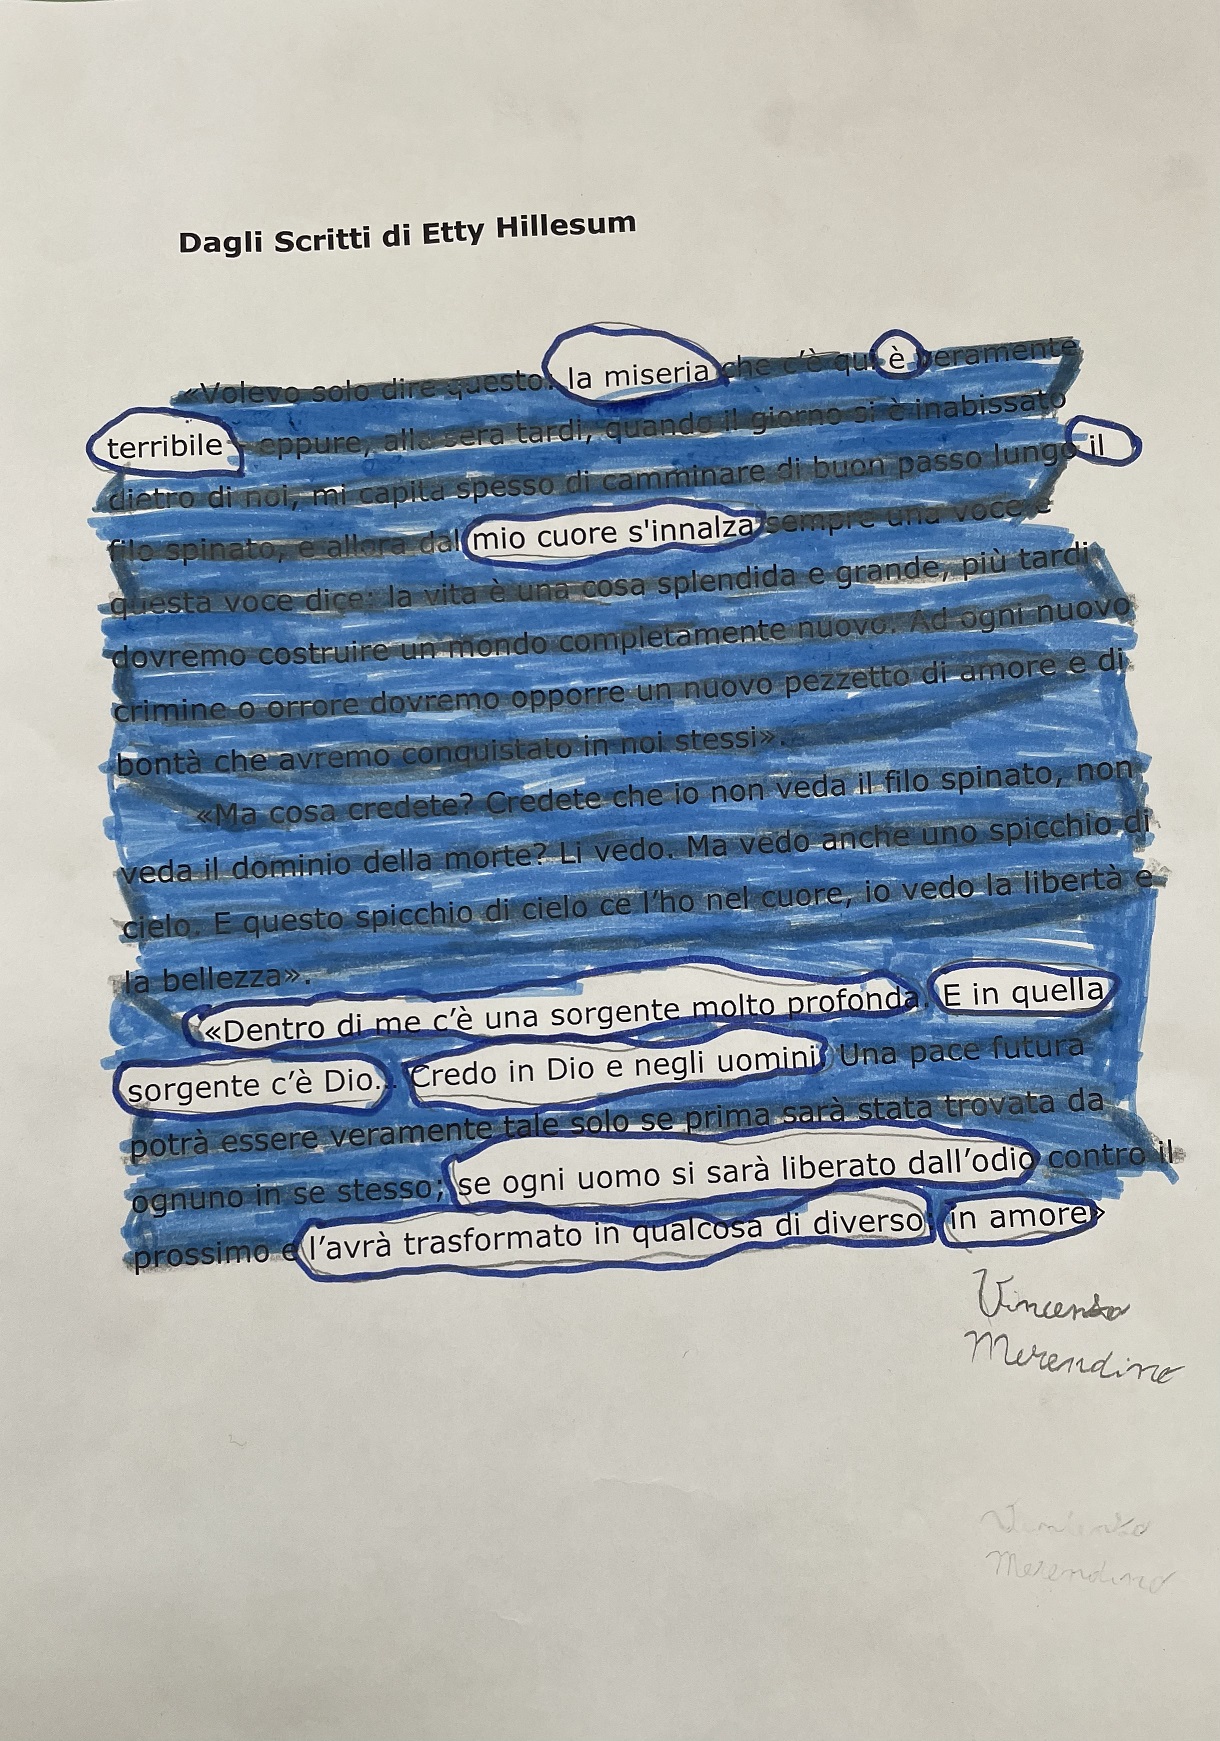 Dagli Scritti di Etty Hillesum
«Volevo solo dire questo: la miseria che c'è qui è veramente
terribile - eppure, alla sera tardi, quando il giorno si è inabissato
dietro di noi, mi capita spesso di camminare di buon passo lungo il
filo spinato, e allora dal mio cuore s'innalza sempre una voce e
questa voce dice: la vita è una cosa splendida e grande, più tardi
dovremo costruire un mondo completamente nuovo. Ad ogni nuovo
crimine o orrore dovremo opporre un nuovo pezzetto di amore e di
bontà che avremo conquistato in noi stessi».
«Ma cosa credete? Credete che io non veda il filo spinato, non
veda il dominio della morte? Li vedo. Ma vedo anche uno spicchio di
cielo. E questo spicchio di cielo ce l'ho nel cuore, io vedo la libertà e
la bellezza».
«Dentro di me c'è una sorgente molto profonda. E in quella
sorgente c'è Dio... Credo in Dio e negli uomini. Una pace futura
potrà essere veramente tale solo se prima sarà stata trovata da
ognuno in se stesso; se ogni uomo si sarà liberato dall'odio contro il
prossimo e l'avrà trasformato in qualcosa di diverso: in amore»
Vincenzo
Merendino
Vincenzo
Merendino